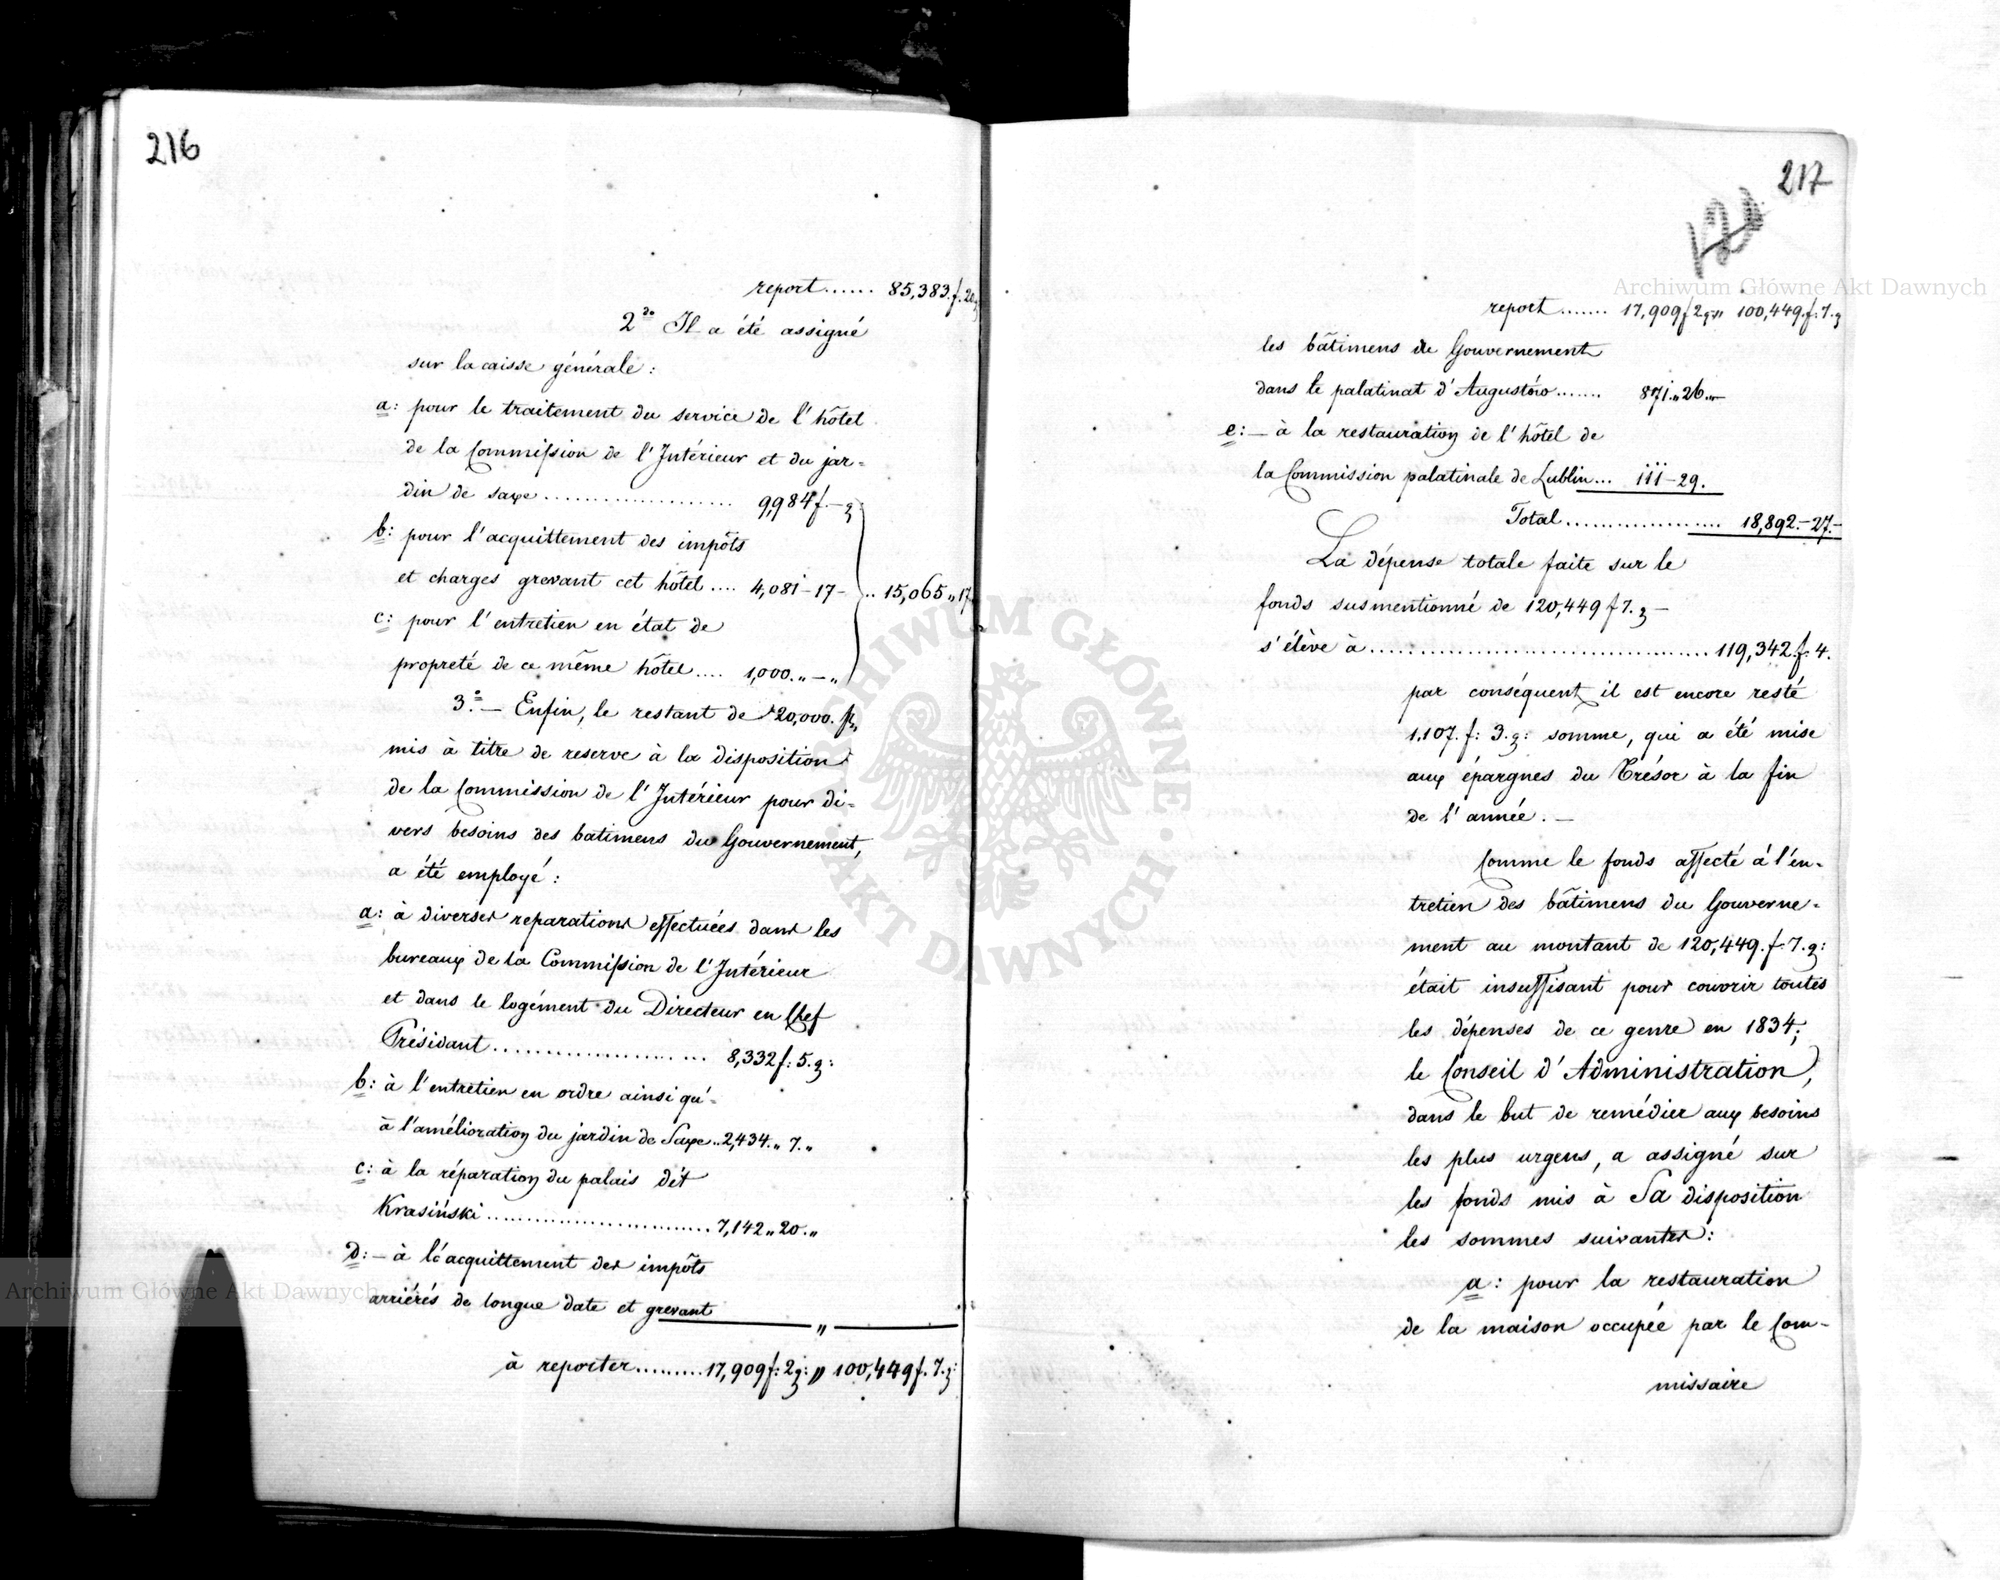 216
report ...... 85,383.f.20.g
2do Il a été assigné
sur la caisse générale:
a: pour le traitement du service de l'hôtel
de la Commission de l'Intérieur et du jar=
din de saxe .................... 9,984 f. - g
b: pour l'acquittement des impôts
et charges grevant cet hôtel .... 4,081 - 17 - .. 15,065 „ 17
c: pour l'entretien en état de
propreté de ce même hôtel .... 1,000. „ - „
3o. — Enfin, le restant de 20,000. fl,
mis à titre de reserve à la disposition
de la Commission de l'Intérieur pour di=
vers besoins des batimens du Gouvernement,
a été employé:
a: à diverses reparations effectuées dans les
bureaux de la Commission de l'Intérieur
et dans le logément du Directeur en Chef
Présidant ...................... 8,332 f: 5. g:
b: à l'entretien en ordre ainsi qu'=
à l'amélioration du jardin de Saxe .. 2,434. „ 7. „
c: à la réparation du palais dit
Krasiński ........................... 7,142 „ 20. „
d: — à l'acquittement des impôts
arriérés de longue date et grevant
„
à reporter ......... 17,909 f: 2 g: „ 100,449 f. 7. g:
217
120
report ....... 17,909 f 2 g „ 100,449. f. 7. g
les bâtimens du Gouvernement
dans le palatinat d'Augustów ....... 871. „ 26. „ —
e: — à la restauration de l'hôtel de
la Commission palatinale de Lublin ... 111 - 29.
Total .................... 18,892. - 27. -
La dépense totale faite sur le
fonds susmentionné de 120,449 f 7. g —
s'élève à .................................... 119,342. f. 4.
par conséquent il est encore resté
1.107. f: 3. g: somme, qui a été mise
aux épargnes du Trésor à la fin
de l'année. —
Comme le fonds affecté à l'en=
tretien des bâtimens du Gouverne=
ment au montant de 120,449. f. 7. g:
était insuffisant pour couvrir toutes
les dépenses de ce genre en 1834;
le Conseil d'Administration,
dans le but de remédier aux besoins
les plus urgens, a assigné sur
les fonds mis à Sa disposition
les sommes suivantes:
a: pour la restauration
de la maison occupée par le Com-
missaire
Archiwum Główne Akt Dawnych
Archiwum Główne Akt Dawnych
ARCHIWUM GŁÓWNE · AKT DAWNYCH ·